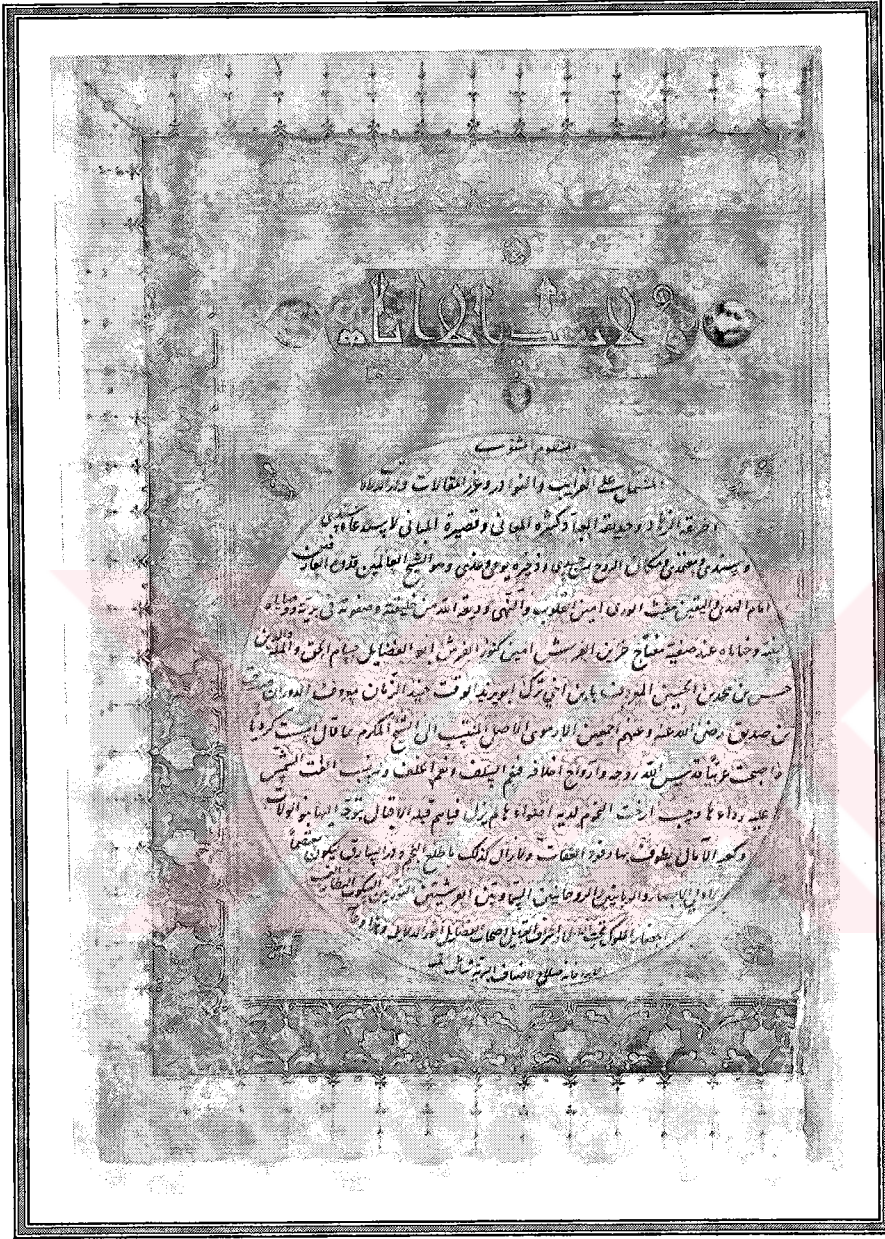 المنظوم المثنوي
المشتمل على الغرايب والنوادر وغرر المقالات ودرر الدلالات
طريقة الزهاد وحديقة العباد كثيرة المعاني وقصيرة المباني لاستدعاء سيدي
وسندي ومعتمدي ومكان الروح من جسدي وذخيرة يومي وغدي وهو الشيخ العالمين قدوة العارفين
امام الهدى واليقين مغيث الورى امين القلوب والنهى وديعة الله من خليقته وصفوته في بريته ووصاياه
لنبيه وخباياه عند صفيه مفتاح خزاين العرش امين كنوز الفرش ابو الفضايل حسام الحق والدين
حسن بن محمد بن الحسين المعروف بابن اخي ترك ابو يزيد الوقت جنيد الزمان
بن صديق رضي الله عنه وعنهم اجمعين الارموي الاصل المنتسب الى الشيخ المكرم بما قال امسيت كرديا
واصبحت عربيا قدس الله روحه وارواح اخلافه فنعم السلف ونعم الخلف نسب القت الشمس
عليه رداءها وحسب ارخت النجوم لديه اضواءها لم يزل فناءهم قبلة الاقبال يتوجه اليها بنو الولاة
وكعبة الآمال يطوف بها وفود العفاة ولا زال كذلك ما طلع النجم وذر شارق ليكون معتصما
لاولي الابصار الربانيين الروحانيين السماويين العرشيين النوريين السكوت النظار الغيب
الحضار الملوك تحت اشراف القبايل اصحاب الفضايل انوار الدلايل